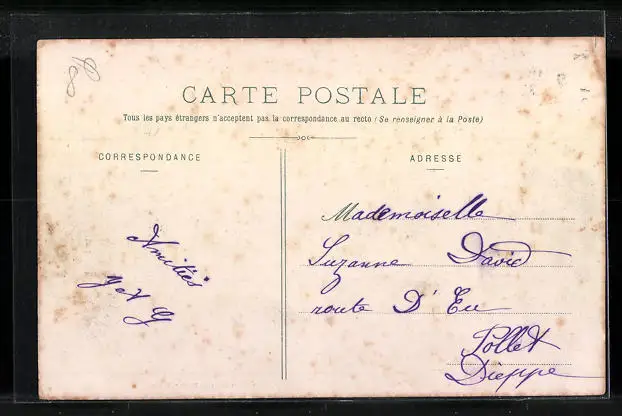 CARTE POSTALE
Tous les pays étrangers n'acceptent pas la correspondance au recto (Se renseigner à la Poste)
CORRESPONDANCE
Amitiés
ADRESSE
Mademoiselle
Suzanne David
route D'Eu
Pollet
Dieppe